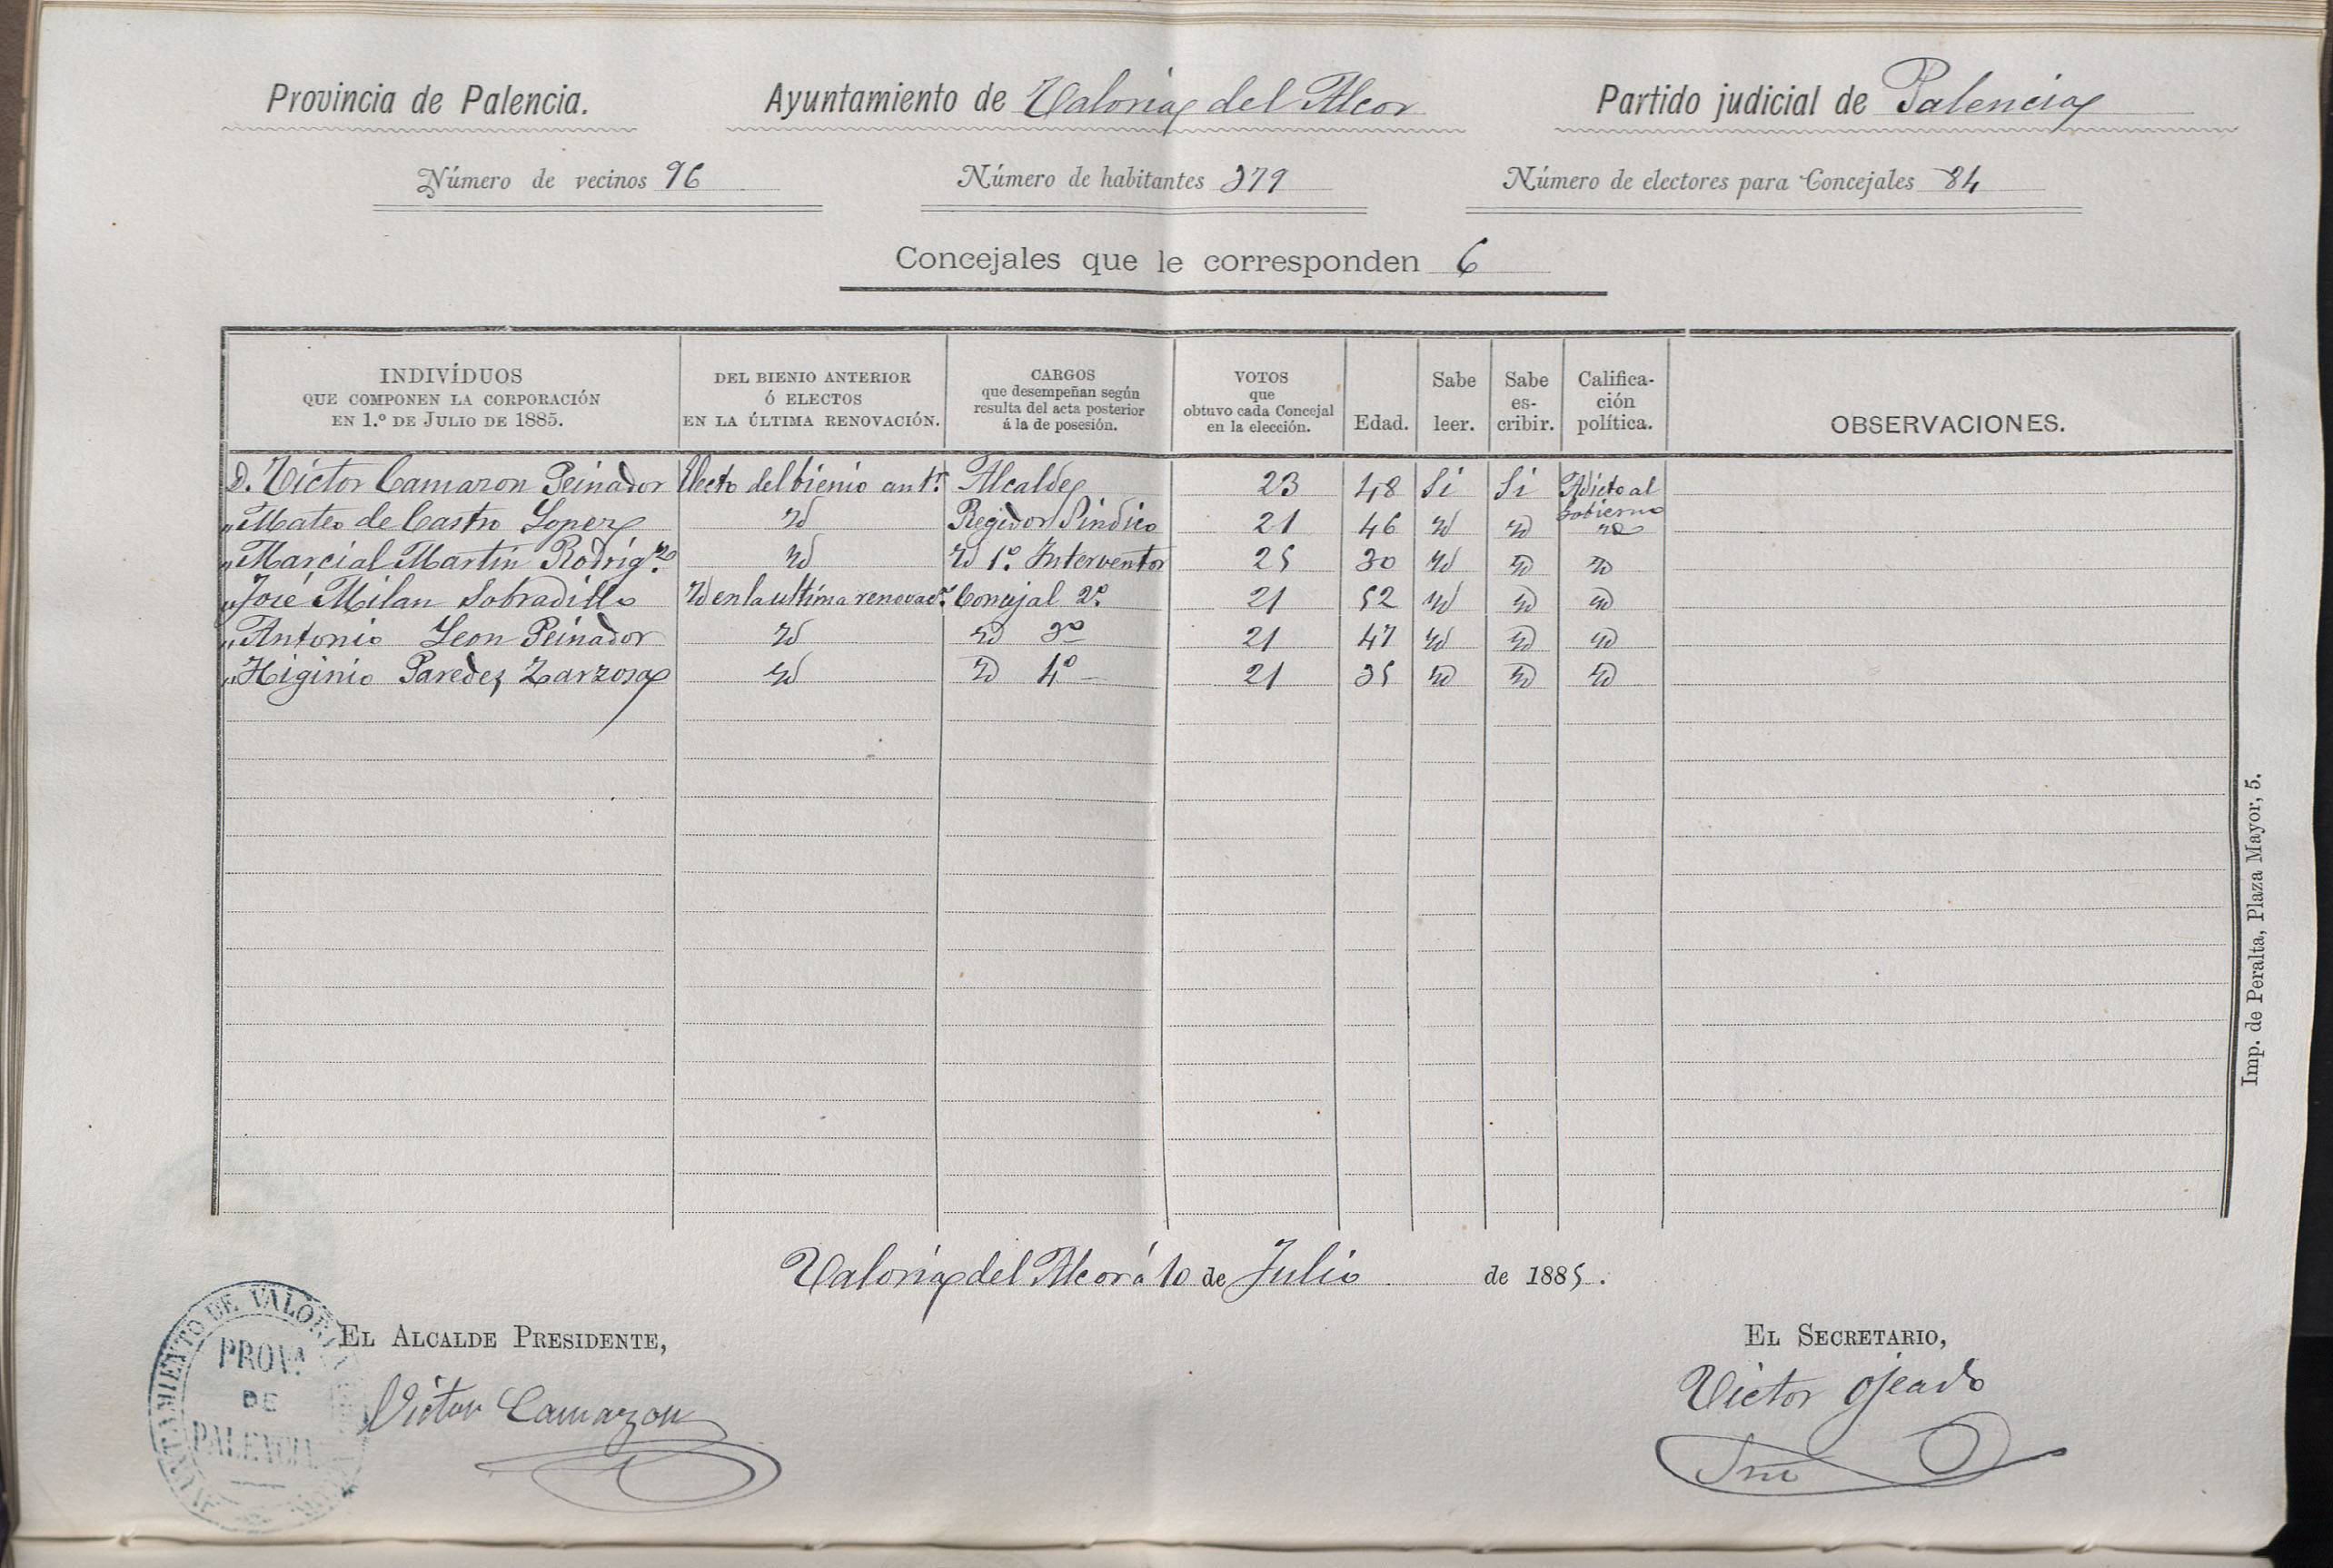 Provincia de Palencia. Ayuntamiento de Valoria del Alcor Partido judicial de Palencia
Número de vecinos 96 Número de habitantes 379 Número de electores para Concejales 84
Concejales que le corresponden 6
INDIVÍDUOS QUE COMPONEN LA CORPORACIÓN EN 1.º DE JULIO DE 1885. DEL BIENIO ANTERIOR Ó ELECTOS EN LA ÚLTIMA RENOVACIÓN. CARGOS que desempeñan según resulta del acta posterior á la de posesión. VOTOS que obtuvo cada Concejal en la elección. Edad. Sabe leer. Sabe es-cribir. Califica-ción política. OBSERVACIONES.
D. Victor Camazon Peinador Electo del bienio antr. Alcalde 23 48 Si Si Adicto al Gobierno
" Mateo de Castro Lopez id Regidor Sindico 21 46 id id id
" Marcial Martin Rodrig.z id id 1.º Interventor 25 30 id id id
" José Milan Sobradillo id en la ultima renovac.n Concejal 2.º 21 52 id id id
" Antonio Leon Peinador id id 3º 21 47 id id id
" Higinio Paredes Zarzosa id id 4º - 21 35 id id id
Valoria del Alcor á 10 de Julio de 1885.
EL ALCALDE PRESIDENTE, EL SECRETARIO,
Victor Camazon Victor Ojeado
Srio
AYUNTAMIENTO DE VALORIA
PROV.ª
DE
PALENCIA
Imp. de Peralta, Plaza Mayor, 5.